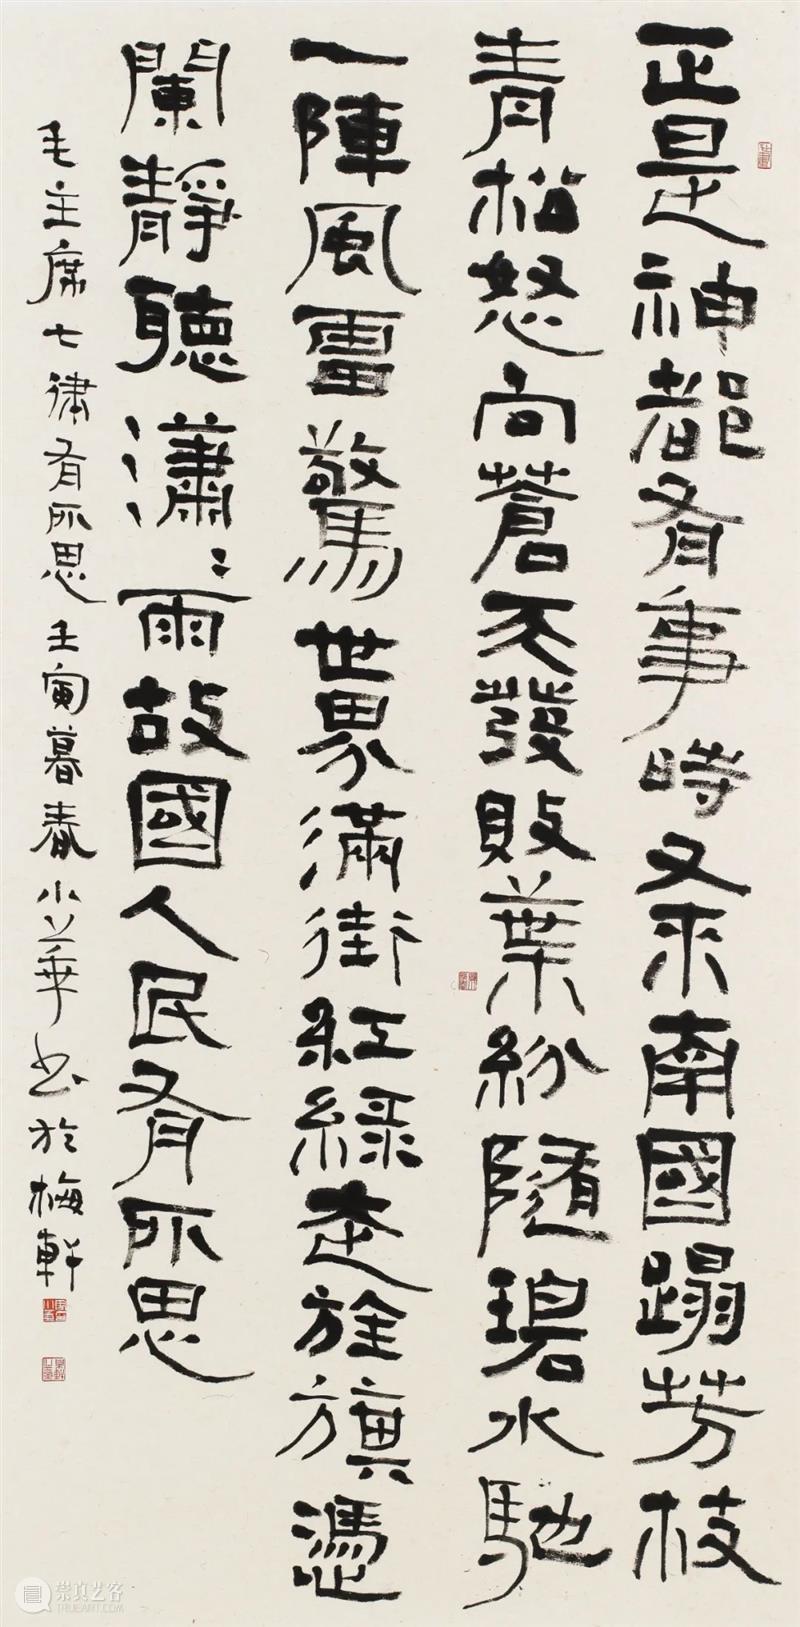 正是神都有事時又來南國蹋芳枝
青松怒向蒼天發敗葉紛隨碧水馳
一陣風雷驚世界滿街紅綠走旌旗憑
闌靜聽瀟〻雨故國人民有所思
毛主席七律有所思 壬寅暮春小華書於梅軒
崇真艺客
TRUEART.COM